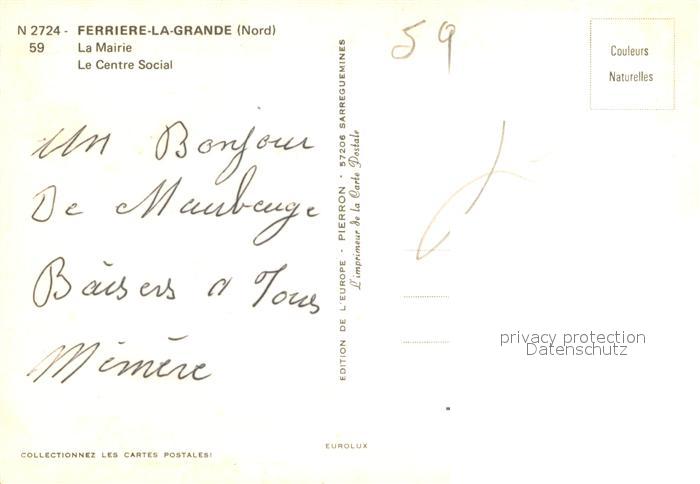 N 2724 - FERRIERE-LA-GRANDE (Nord)
59 La Mairie
Le Centre Social
59
Couleurs
Naturelles
Un Bonjour
De Maubeuge
Baisers a Tous
Mémère
EDITION DE L'EUROPE - PIERRON - 57206 SARREGUEMINES
L'imprimeur de la Carte Postale
privacy protection
Datenschutz
EUROLUX
COLLECTIONNEZ LES CARTES POSTALES!